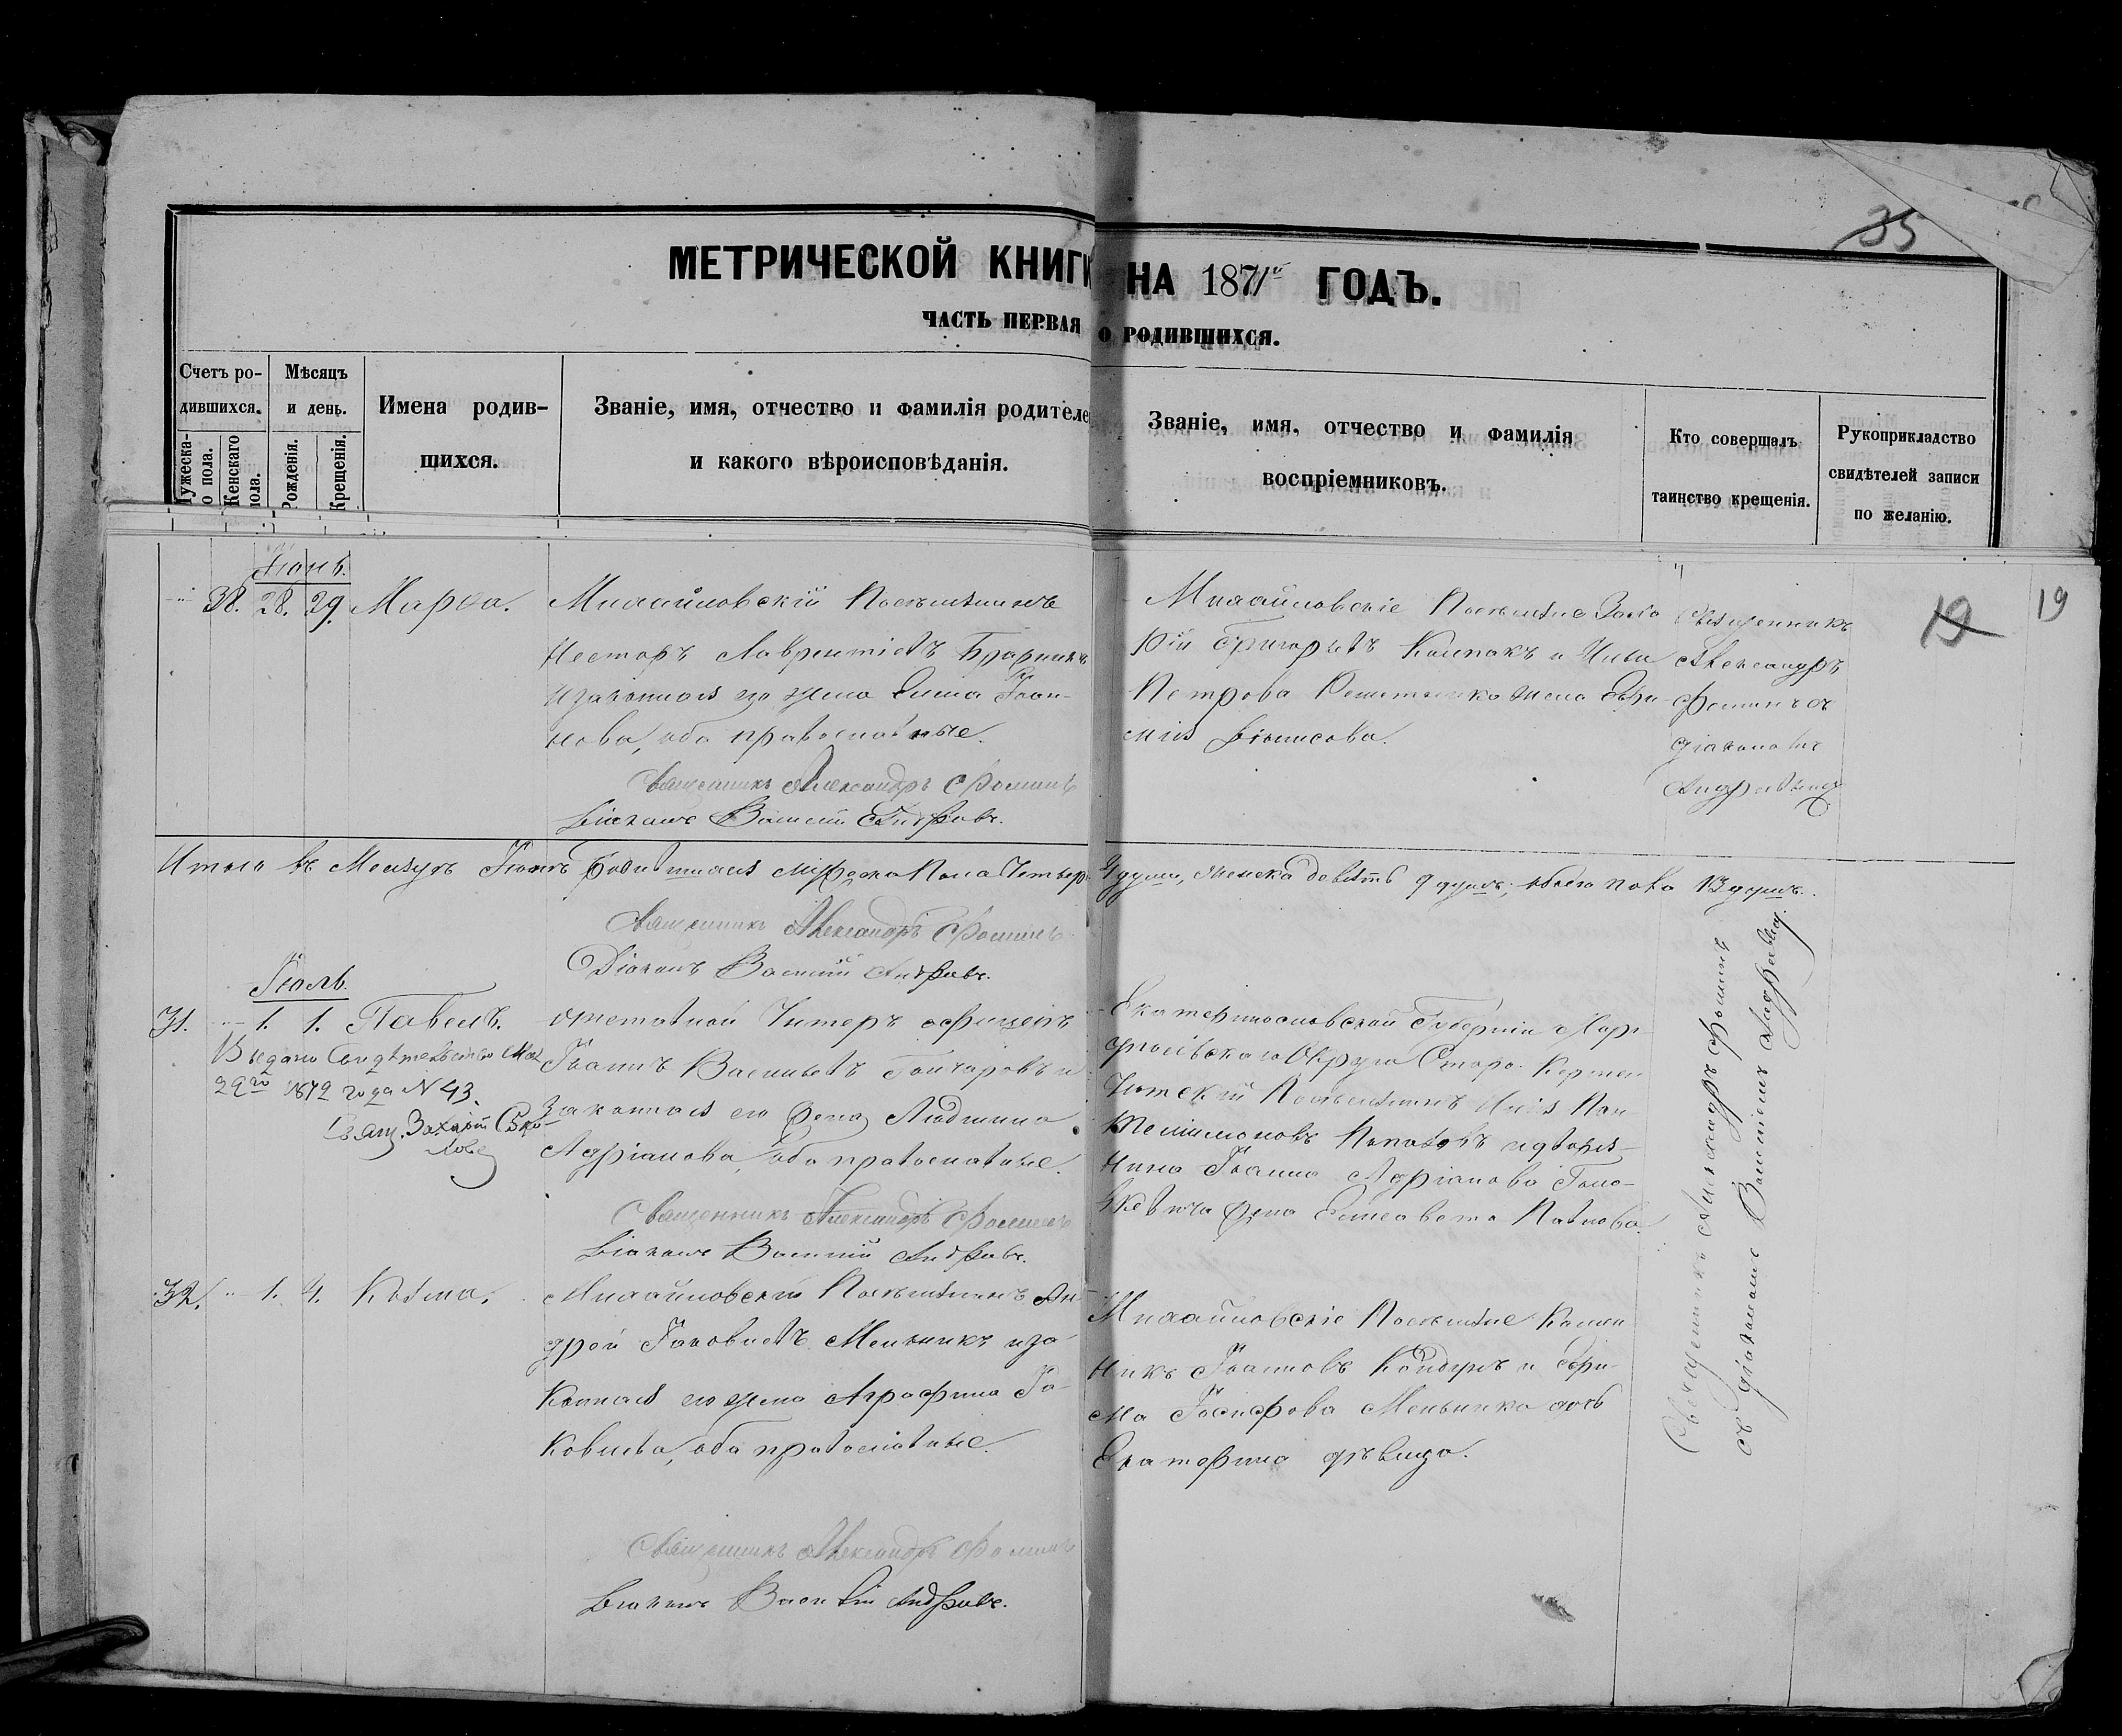 35
МЕТРИЧЕСКОЙ КНИГИ НА 1871й ГОДЪ.
ЧАСТЬ ПЕРВАЯ О РОДИВШИХСЯ.
Счетъ ро-
дившихся.
ужеска-
о пола.
Женскаго
пола.
Мѣсяцъ
и день.
Рожденія.
Крещенія.
Имена родив-
шихся.
Званіе, имя, отчество и фамилія родителе
и какого вѣроисповѣданія.
Званіе, имя, отчество и фамилія
воспріемниковъ.
Кто совершалъ
таинство крещенія.
Рукоприкладство
свидѣтелей записи
по желанію.
19
19
Іюнь.
38. 28. 29. Марѳа.
Михайловскій Поселянинъ
Несторъ Лаврентіевъ
и законная его жена Елена Іоан-
нова, оба православные.
Священникъ Александръ Фоминъ
Діаконъ Василій Андреевъ.
Михайловскіе Поселяне
Григорьевъ Колпакъ и
Петрова жена Евфи-
мія Денисова.
Священникъ
Александръ
Фоминъ съ
діакономъ
Андреевымъ
Итого въ Месяцѣ Іюнѣ родившихся мужеска пола Четыре 4 души, женска девять 9 душъ, обоего пола 13 душъ.
Священникъ Александръ Фоминъ
Діаконъ Василій Андреевъ.
Іюль.
31. " 1. 1. Павелъ.
Выдано Свидѣтельство
29го 1872 года N 43.
Свящ. Захарій
Отставной Унтеръ офицеръ
Іоаннъ Васильевъ Гончаровъ и
Законная его жена Людмила
Адріанова, оба православные.
Священникъ Александръ Фоминъ
Діаконъ Василій Андреевъ.
Екатеринославской Губерніи Марі-
упольскаго Округа Старо-Кермен-
чикскій Поселянинъ Илія Пан-
телимоновъ и дворя-
нина Іоанна Адріанова
жена Елисавета Павлова.
Священникъ Александръ Фоминъ
съ діакономъ Василіемъ Андреевымъ
32. " 1. 4. Козма.
Михайловскій Поселянинъ Ан-
дрей Іаковлевъ Мельникъ и за-
конная его жена Агрофина Іа-
ковлева, оба православные.
Священникъ Александръ Фоминъ
Діаконъ Василій Андреевъ.
Михайловскіе Поселяне
Іоанновъ и
Іосифова Мельника дочь
Екатерина дѣвица.